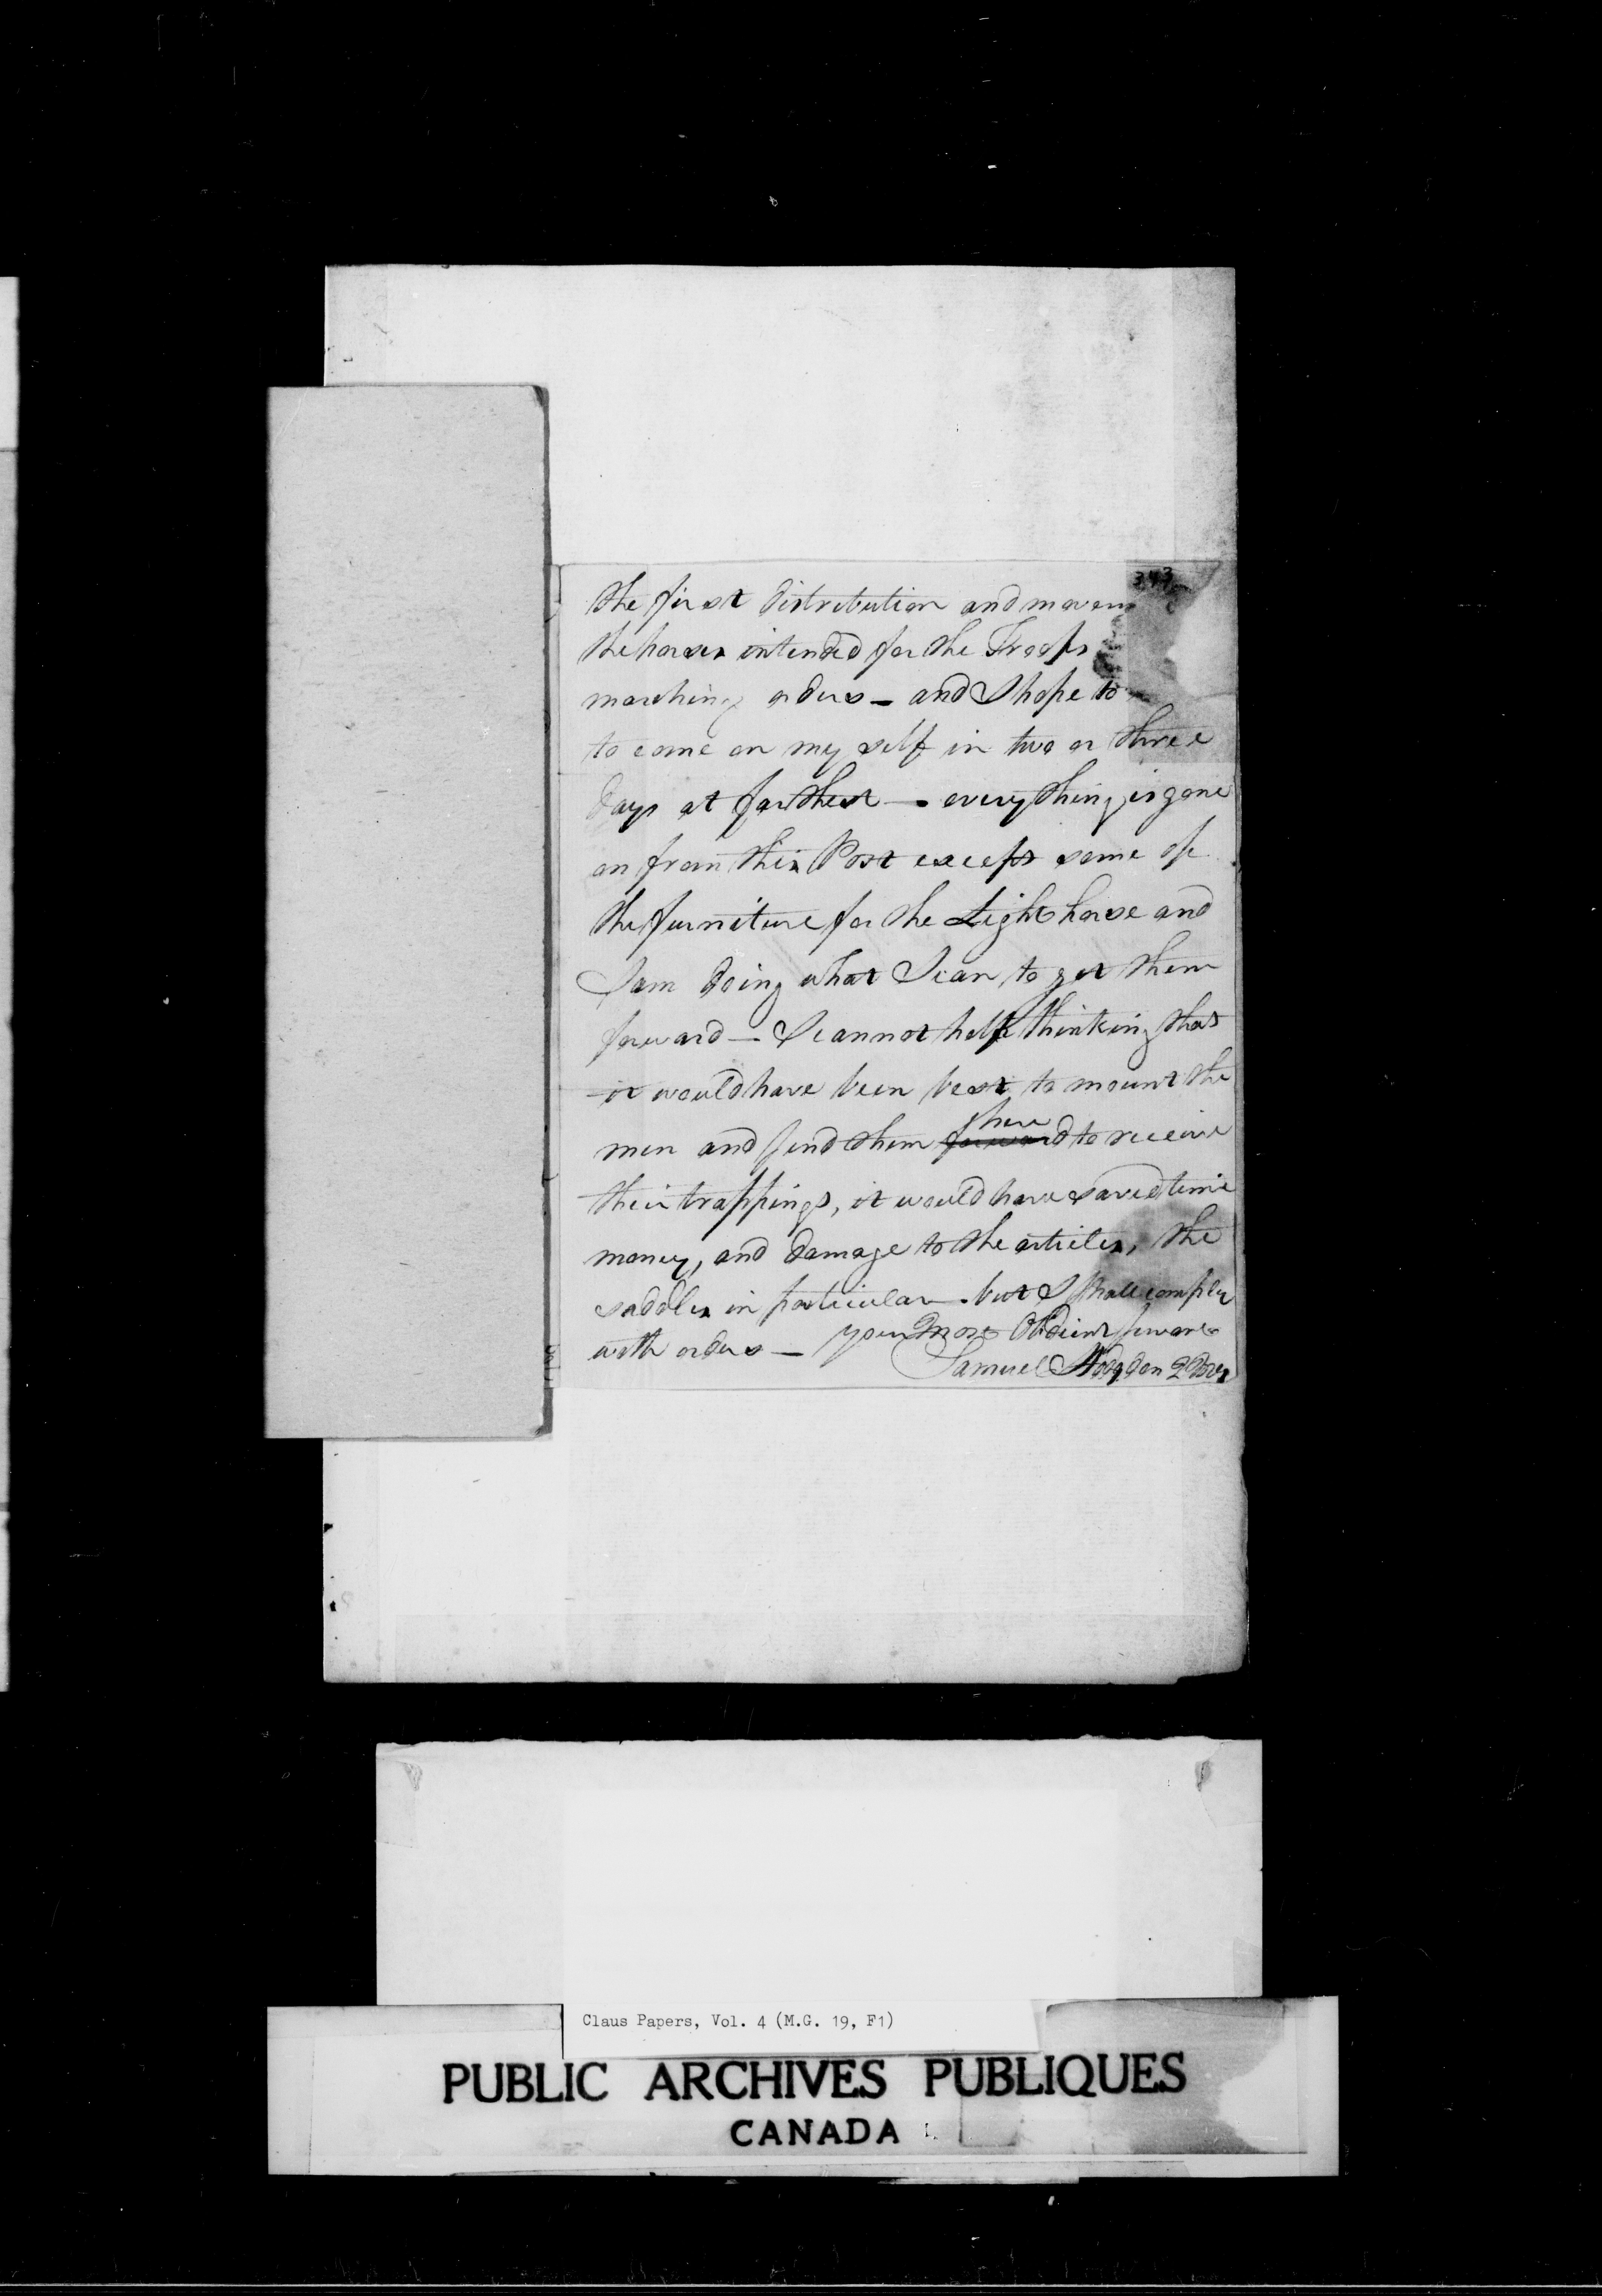 343
the first distribution and movem
the horses intended for the Troops
marching orders — and I hope to
to come on my self in two or three
days at farthest — every thing is gone
on from this Post except some of
the furniture for the Light horse and
I am doing what I can to get them
forward — I cannot help thinking that
it would have been best to mount the
men and send them forward here to receive
their trappings, it would have saved time
money, and damage to the articles, the
saddles in particular — but I shall comply
with orders — your Most Obedient Servant
Samuel Hodgdon
Claus Papers, Vol. 4 (M.G. 19, F1)
PUBLIC ARCHIVES PUBLIQUES
CANADA